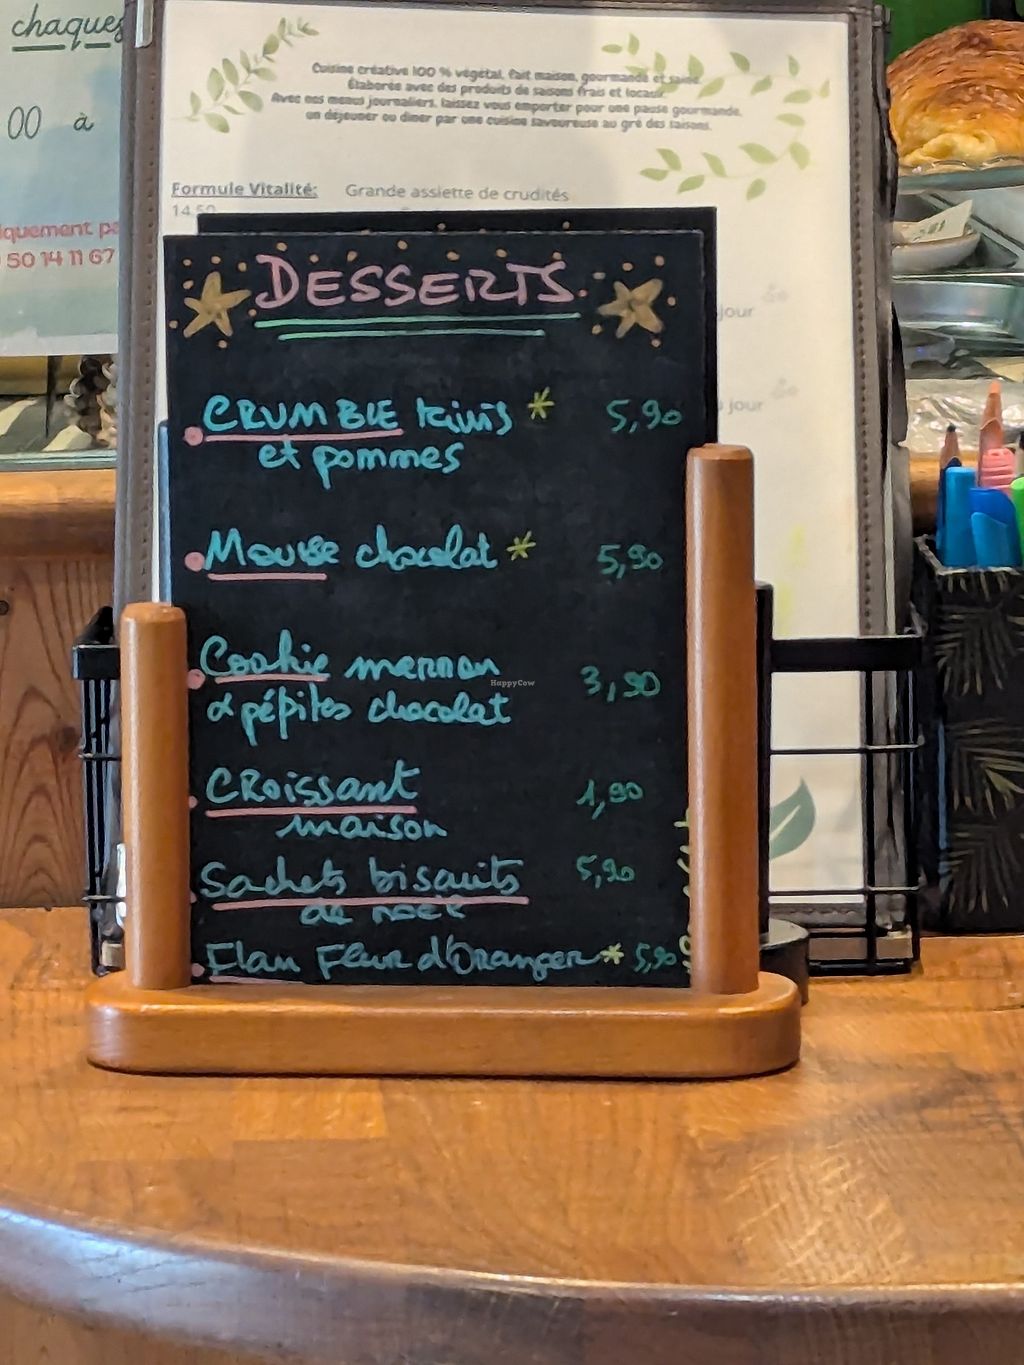 chaques
00 à
iquement pa
50 14 11 67
Cuisine créative 100 % végétal, fait maison, gourmande et saine.
Élaborée avec des produits de saisons frais et locaux.
Avec nos menus journaliers, laissez vous emporter pour une pause gourmande,
un déjeuner ou diner par une cuisine savoureuse au gré des saisons.
Formule Vitalité: Grande assiette de crudités
14,50
jour
jour
DESSERTS
CRUMBLE kiwis * 5,90
et pommes
Mousse chocolat * 5,90
Cookie marron 3,90
& pépites chocolat
CRoissant 1,90
maison
Sachets biscuits 5,90
de noël
Flan Fleur d'Oranger * 5,90
HappyCow